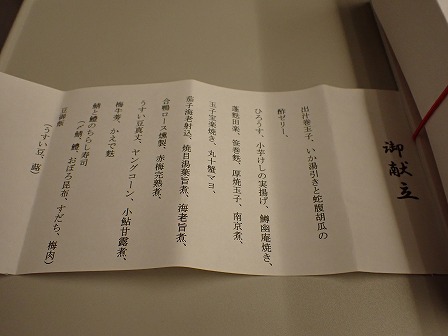 御献立
出汁巻玉子、いか湯引きと蛇腹胡瓜の
酢ゼリー、
ひろうす、小芋けしの実揚げ、鱒幽庵焼き、
蓬麩田楽、笹巻麩、厚焼玉子、南京煮、
玉子宝楽焼き、丸十蟹マヨ、
茄子海老射込、焼目湯葉旨煮、海老旨煮、
合鴨ロース燻製、赤梅完熟煮、
うすい豆真丈、ヤングコーン、小鮎甘露煮、
梅牛蒡、かえで麩
鯖と鱧のちらし寿司
(〆鯖、鱧、おぼろ昆布、すだち、梅肉)
豆御飯
(うすい豆、蕗)